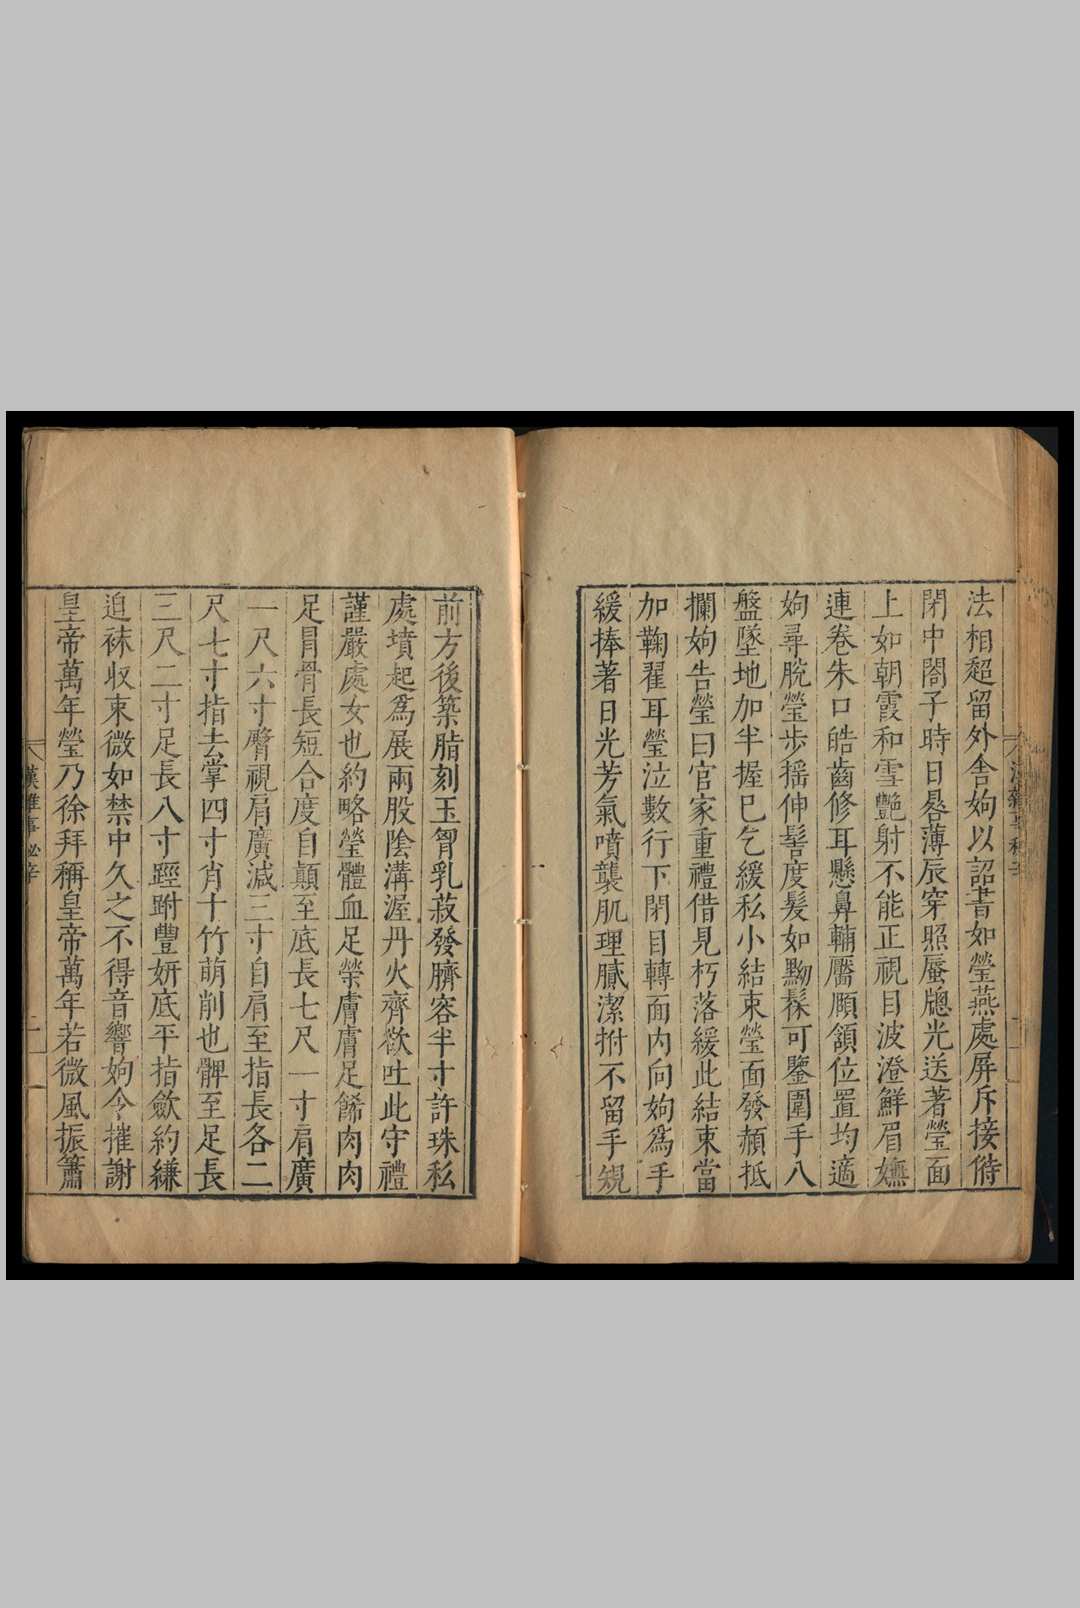 法相超留外舍姁以詔書如瑩燕處屏斥接偫
閉中閤子時日晷薄辰穿照蜃牕光送著瑩面
上如朝霞和雪艷射不能正視目波澄鮮眉嫵
連卷朱口皓齒修耳懸鼻輔靨頤頷位置均適
姁尋脫瑩步搖伸髻度髮如黝髹可鑒圍手八
盤墜地加半握巳乞緩私小結束瑩面發赬抵
攔姁告瑩曰官家重禮借見朽落緩此結束當
加鞠翟耳瑩泣數行下閉目轉面內向姁為手
緩捧著日光芳氣噴襲肌理膩潔拊不留手規
前方後築脂刻玉胷乳菽發臍容半寸許珠私
處墳起為展兩股陰溝渥丹火齊欲吐此守禮
謹嚴處女也約略瑩體血足榮膚膚足餙肉肉
足冐骨長短合度自顛至底長七尺一寸肩廣
一尺六寸臀視肩廣減三寸自肩至指長各二
尺七寸指去掌四寸肖十竹萌削也髀至足長
三尺二寸足長八寸踁跗豐妍底平指斂約縑
迫袜収束微如禁中久之不得音響姁令摧謝
皇帝萬年瑩乃徐拜稱皇帝萬年若微風振簫
漢雜事秘辛
二